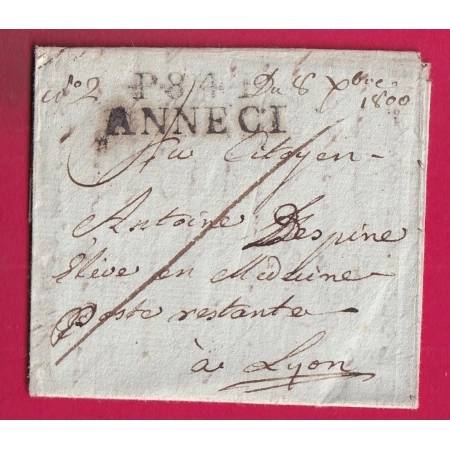 N° 2 P.84.P. Du 8 Xbre
1800
ANNECI
Au Citoyen
Antoine Despine
Elève en Médecine
Poste restante
à Lyon